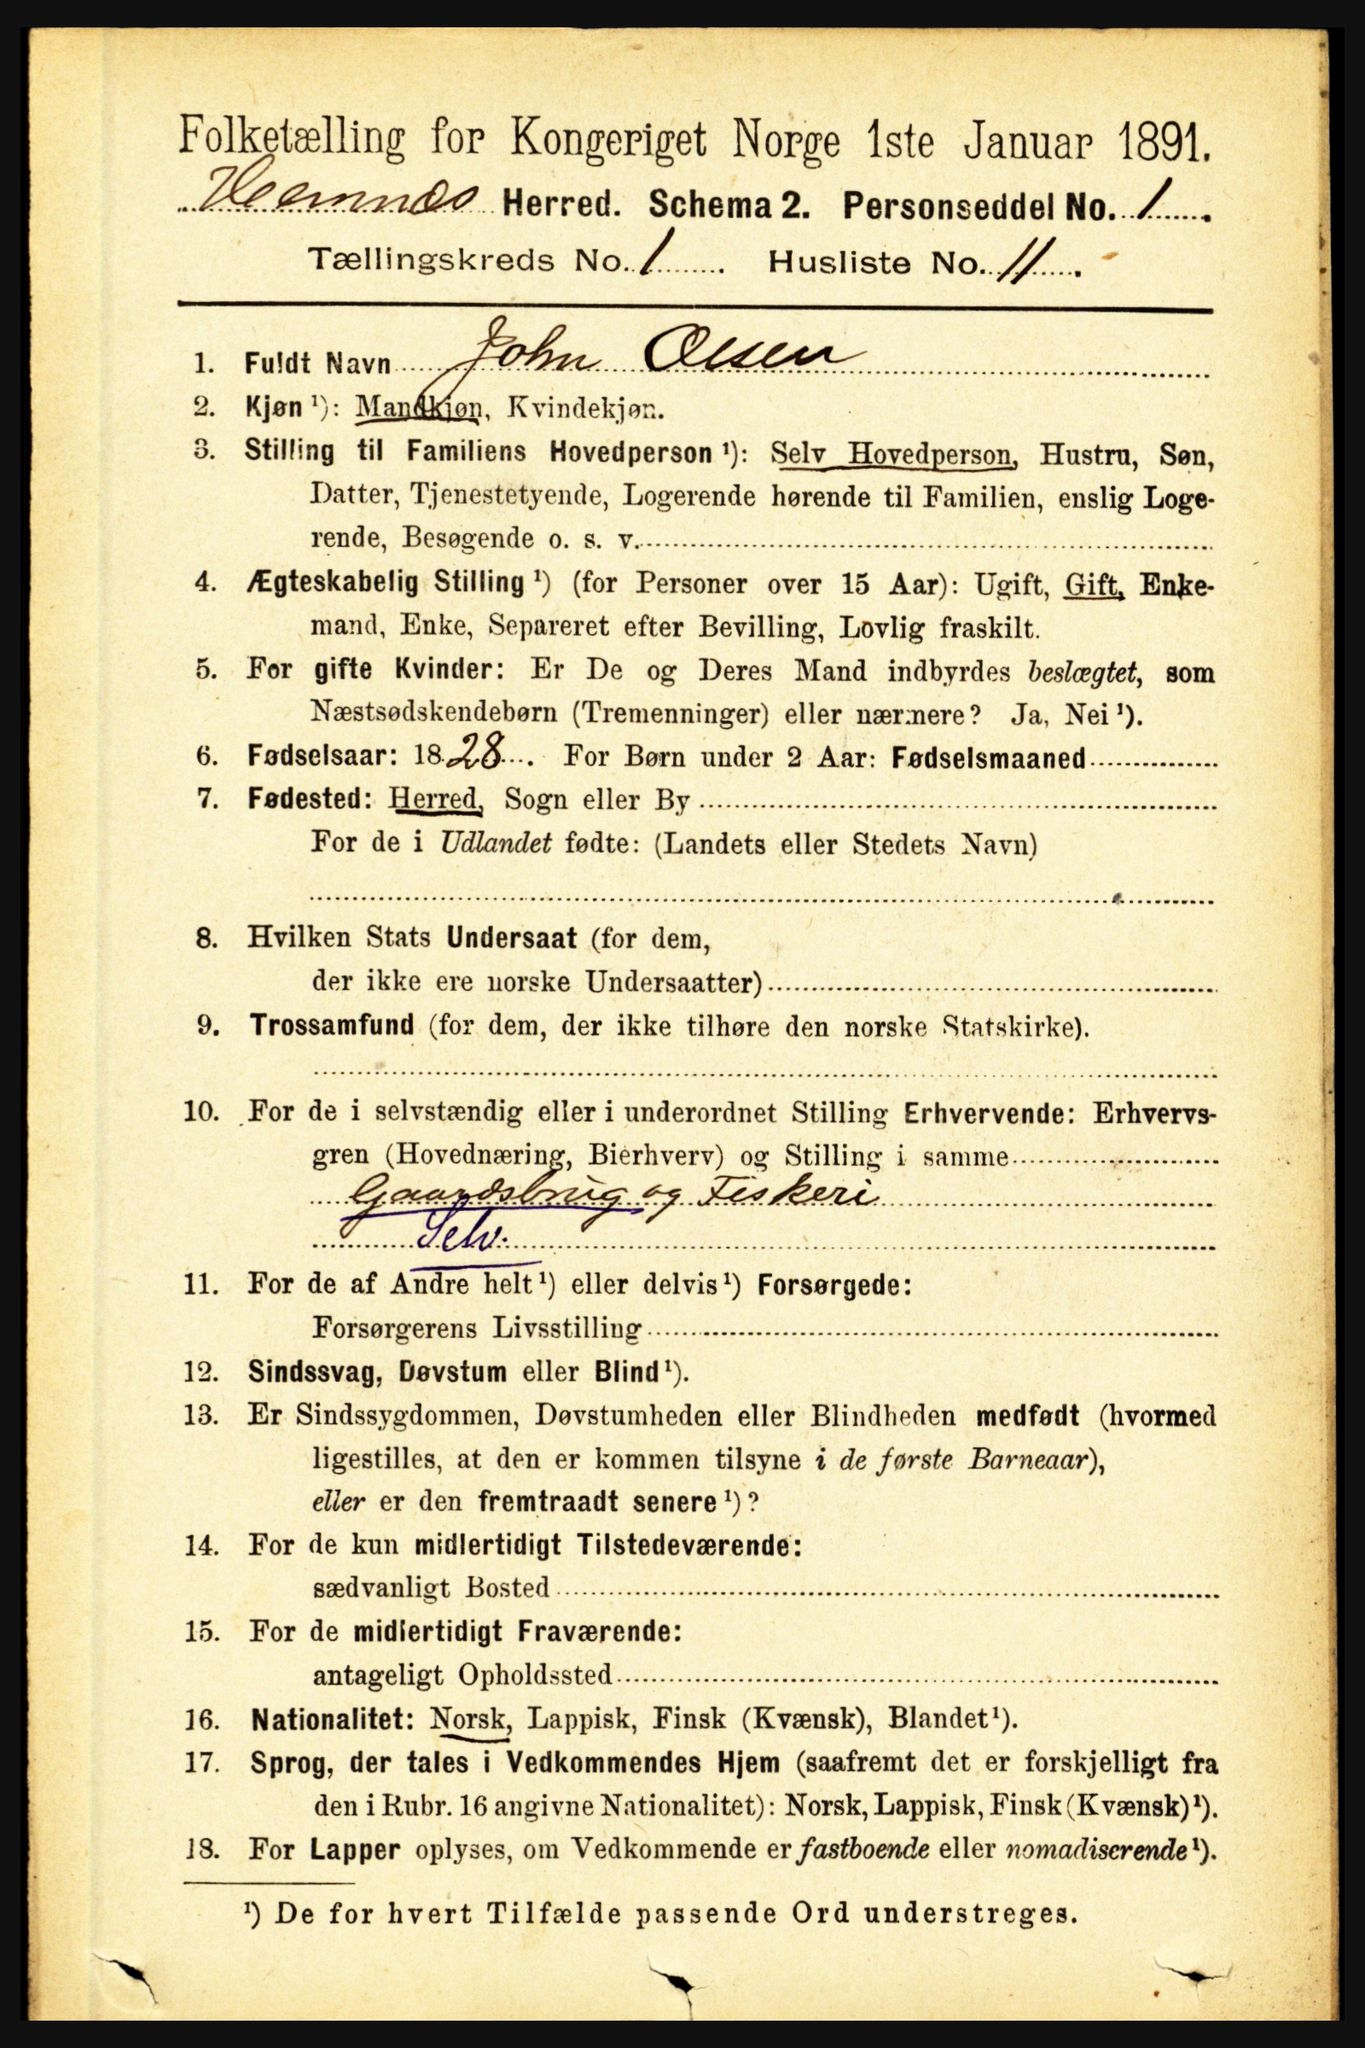 Folketælling for Kongeriget Norge 1ste Januar 1891.
Hemnæs Herred. Schema 2. Personseddel No. 1
Tællingskreds No. 1 Husliste No. 11
1. Fuldt Navn John Olsen
2. Kjøn ¹): Mandkjøn, Kvindekjøn.
3. Stilling til Familiens Hovedperson ¹): Selv Hovedperson, Hustru, Søn,
Datter, Tjenestetyende, Logerende hørende til Familien, enslig Loge-
rende, Besøgende o. s. v.
4. Ægteskabelig Stilling ¹) (for Personer over 15 Aar): Ugift, Gift, Enke-
mand, Enke, Separeret efter Bevilling, Lovlig fraskilt.
5. For gifte Kvinder: Er De og Deres Mand indbyrdes beslægtet, som
Næstsødskendebørn (Tremenninger) eller nærmere? Ja, Nei ¹).
6. Fødselsaar: 1828. For Børn under 2 Aar: Fødselsmaaned
7. Fødested: Herred, Sogn eller By
For de i Udlandet fødte: (Landets eller Stedets Navn)
8. Hvilken Stats Undersaat (for dem,
der ikke ere norske Undersaatter)
9. Trossamfund (for dem, der ikke tilhøre den norske Statskirke).
10. For de i selvstændig eller i underordnet Stilling Erhvervende: Erhvervs-
gren (Hovednæring, Bierhverv) og Stilling i samme
Gaardsbrug og Fiskeri
Selv.
11. For de af Andre helt ¹) eller delvis ¹) Forsørgede:
Forsørgerens Livsstilling
12. Sindssvag, Døvstum eller Blind ¹).
13. Er Sindssygdommen, Døvstumheden eller Blindheden medfødt (hvormed
ligestilles, at den er kommen tilsyne i de første Barneaar),
eller er den fremtraadt senere ¹)?
14. For de kun midlertidigt Tilstedeværende:
sædvanligt Bosted
15. For de midlertidigt Fraværende:
antageligt Opholdssted
16. Nationalitet: Norsk, Lappisk, Finsk (Kvænsk), Blandet ¹).
17. Sprog, der tales i Vedkommendes Hjem (saafremt det er forskjelligt fra
den i Rubr. 16 angivne Nationalitet): Norsk, Lappisk, Finsk (Kvænsk) ¹).
18. For Lapper oplyses, om Vedkommende er fastboende eller nomadiserende ¹).
¹) De for hvert Tilfælde passende Ord understreges.